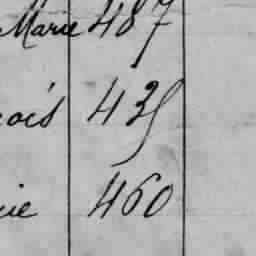 Marie 487
çois 435
rie 460